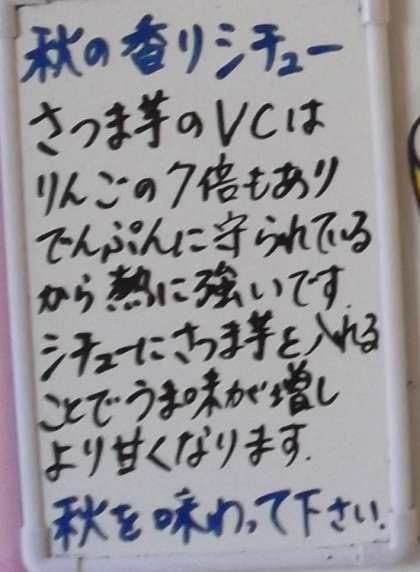 秋の香りシチュー
さつま芋のVCは
りんごの7倍もあり
でんぷんに守られている
から熱に強いです.
シチューにさつま芋を入れる
ことでうま味が増し
より甘くなります.
秋を味わって下さい.